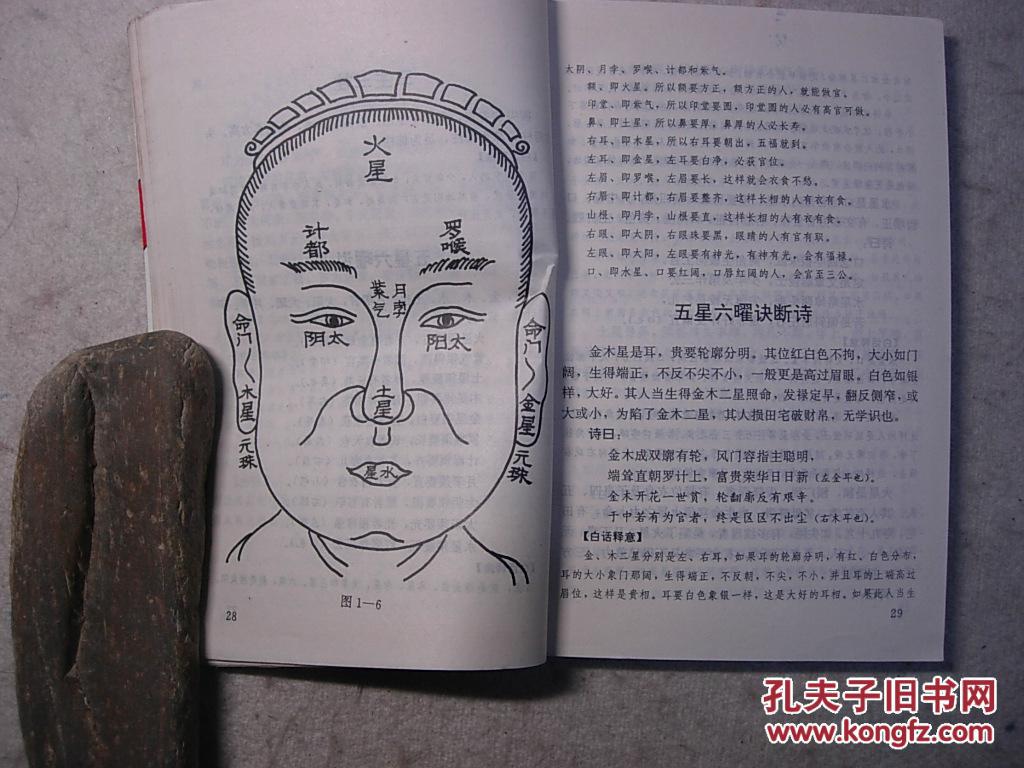 火星
计都
罗喉
紫气
月孛
太阴
太阳
命门
木星
元珠
命门
金星
元珠
土星
水星
图1—6
28
太阴、月孛、罗喉、计都和紫气。
额、即火星。所以额要方正，额方正的人，就能做官。
印堂、即紫气，所以印堂要圆，印堂圆的人必有高官可做。
鼻、即土星，所以鼻要厚，鼻厚的人必长寿。
右耳、即木星，所以右耳要朝出，五福就到。
左耳、即金星，左耳要白净，必获官位。
左眉、即罗喉，左眉要长，这样就会衣食不愁。
右眉、即计都，右眉要整齐，这样长相的人有衣有食。
山根、即月孛，山根要直，这样长相的人有衣有食。
右眼、即太阴，右眼珠要黑，眼睛的人有官有职。
左眼、即太阳，左眼要有神光，有神有光，会有福禄。
口、即水星、口要红阔，口唇红阔的人，会官至三公。
五星六曜诀断诗
金木星是耳，贵要轮廓分明。其位红白色不拘，大小如门
阔，生得端正，不反不尖不小，一般更是高过眉眼。白色如银
样，大好。其人当生得金木二星照命，发禄定早，翻反侧窄，或
大或小，为陷了金木二星，其人损田宅破财帛，无学识也。
诗曰：
金木成双廓有轮，风门容指主聪明，
端耸直朝罗计上，富贵荣华日日新（左金耳也）。
金木开花一世贫，轮翻廓反有艰辛。
于中若有为官者，终是区区不出尘（右木耳也）。
【白话释意】
金、木二星分别是左、右耳，如果耳的轮廓分明，有红、白色分布，
耳的大小象门那阔，生得端正，不反朝，不尖，不小，并且耳的上端高过
眉位，这样是贵相。耳要白色象银一样，这是大好的耳相。如果此人当生
29
孔夫子旧书网
www.kongfz.com